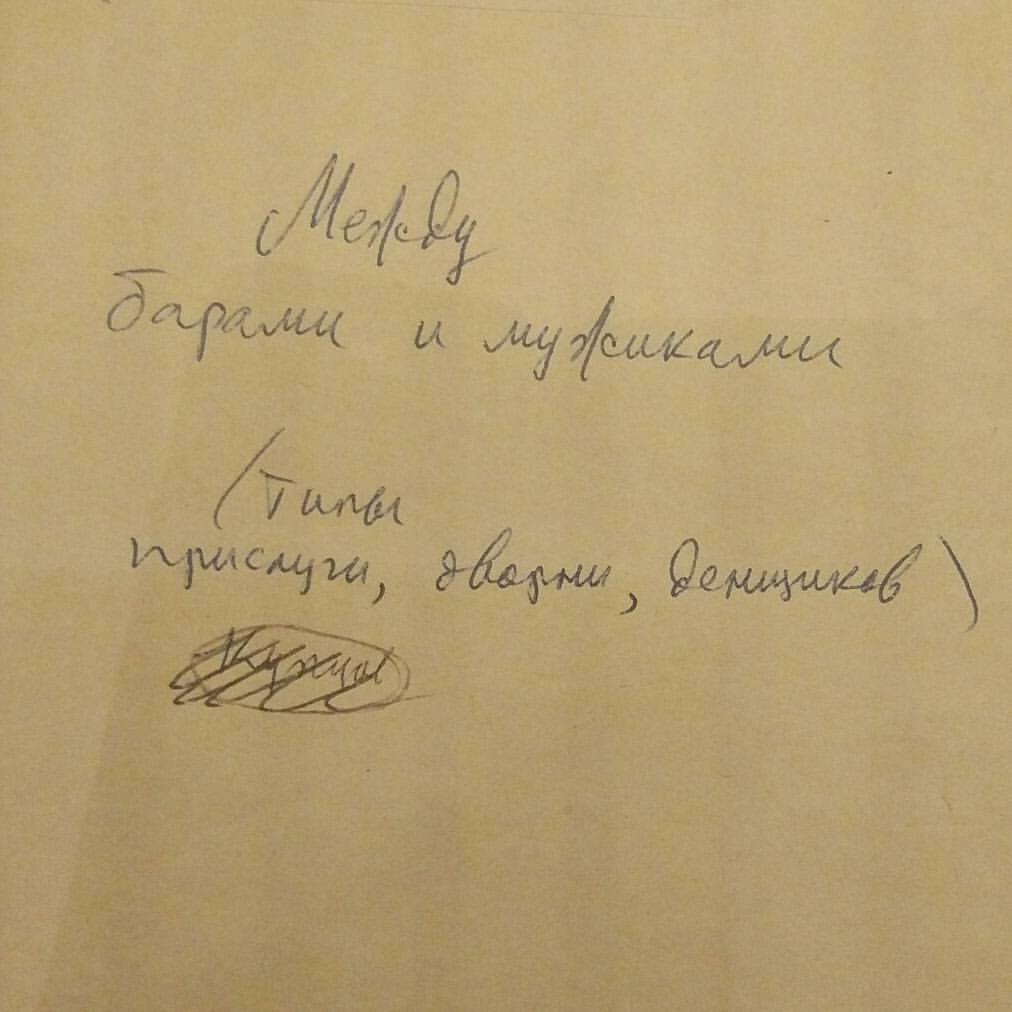 Между
барами и мужиками
(типы
прислуги, дворни, денщиков)